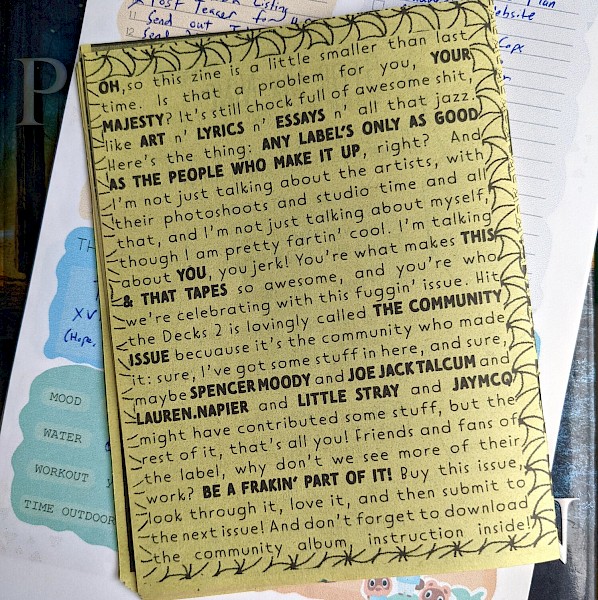 Listing
Post Teaser for
11 Send out
12 Send
Plan
website
P
OH, so this zine is a little smaller than last
time. Is that a problem for you, YOUR
MAJESTY? It's still chock full of awesome shit,
like ART n' LYRICS n' ESSAYS n' all that jazz.
Here's the thing: ANY LABEL'S ONLY AS GOOD
AS THE PEOPLE WHO MAKE IT UP, right? And
I'm not just talking about the artists, with
their photoshoots and studio time and all
that, and I'm not just talking about myself,
though I am pretty fartin' cool. I'm talking
about YOU, you jerk! You're what makes THIS
& THAT TAPES so awesome, and you're who
we're celebrating with this fuggin' issue. Hit
the Decks 2 is lovingly called THE COMMUNITY
ISSUE becuause it's the community who made
it: sure, I've got some stuff in here, and sure,
maybe SPENCER MOODY and JOE JACK TALCUM and
LAUREN.NAPIER and LITTLE STRAY and JAYMCQ
might have contributed some stuff, but the
rest of it, that's all you! Friends and fans of
the label, why don't we see more of their
work? BE A FRAKIN' PART OF IT! Buy this issue,
look through it, love it, and then submit to
the next issue! And don't forget to download
the community album, instruction inside!
TH
XV
(Hope,
MOOD
WATER
WORKOUT
TIME OUTDOOR
N